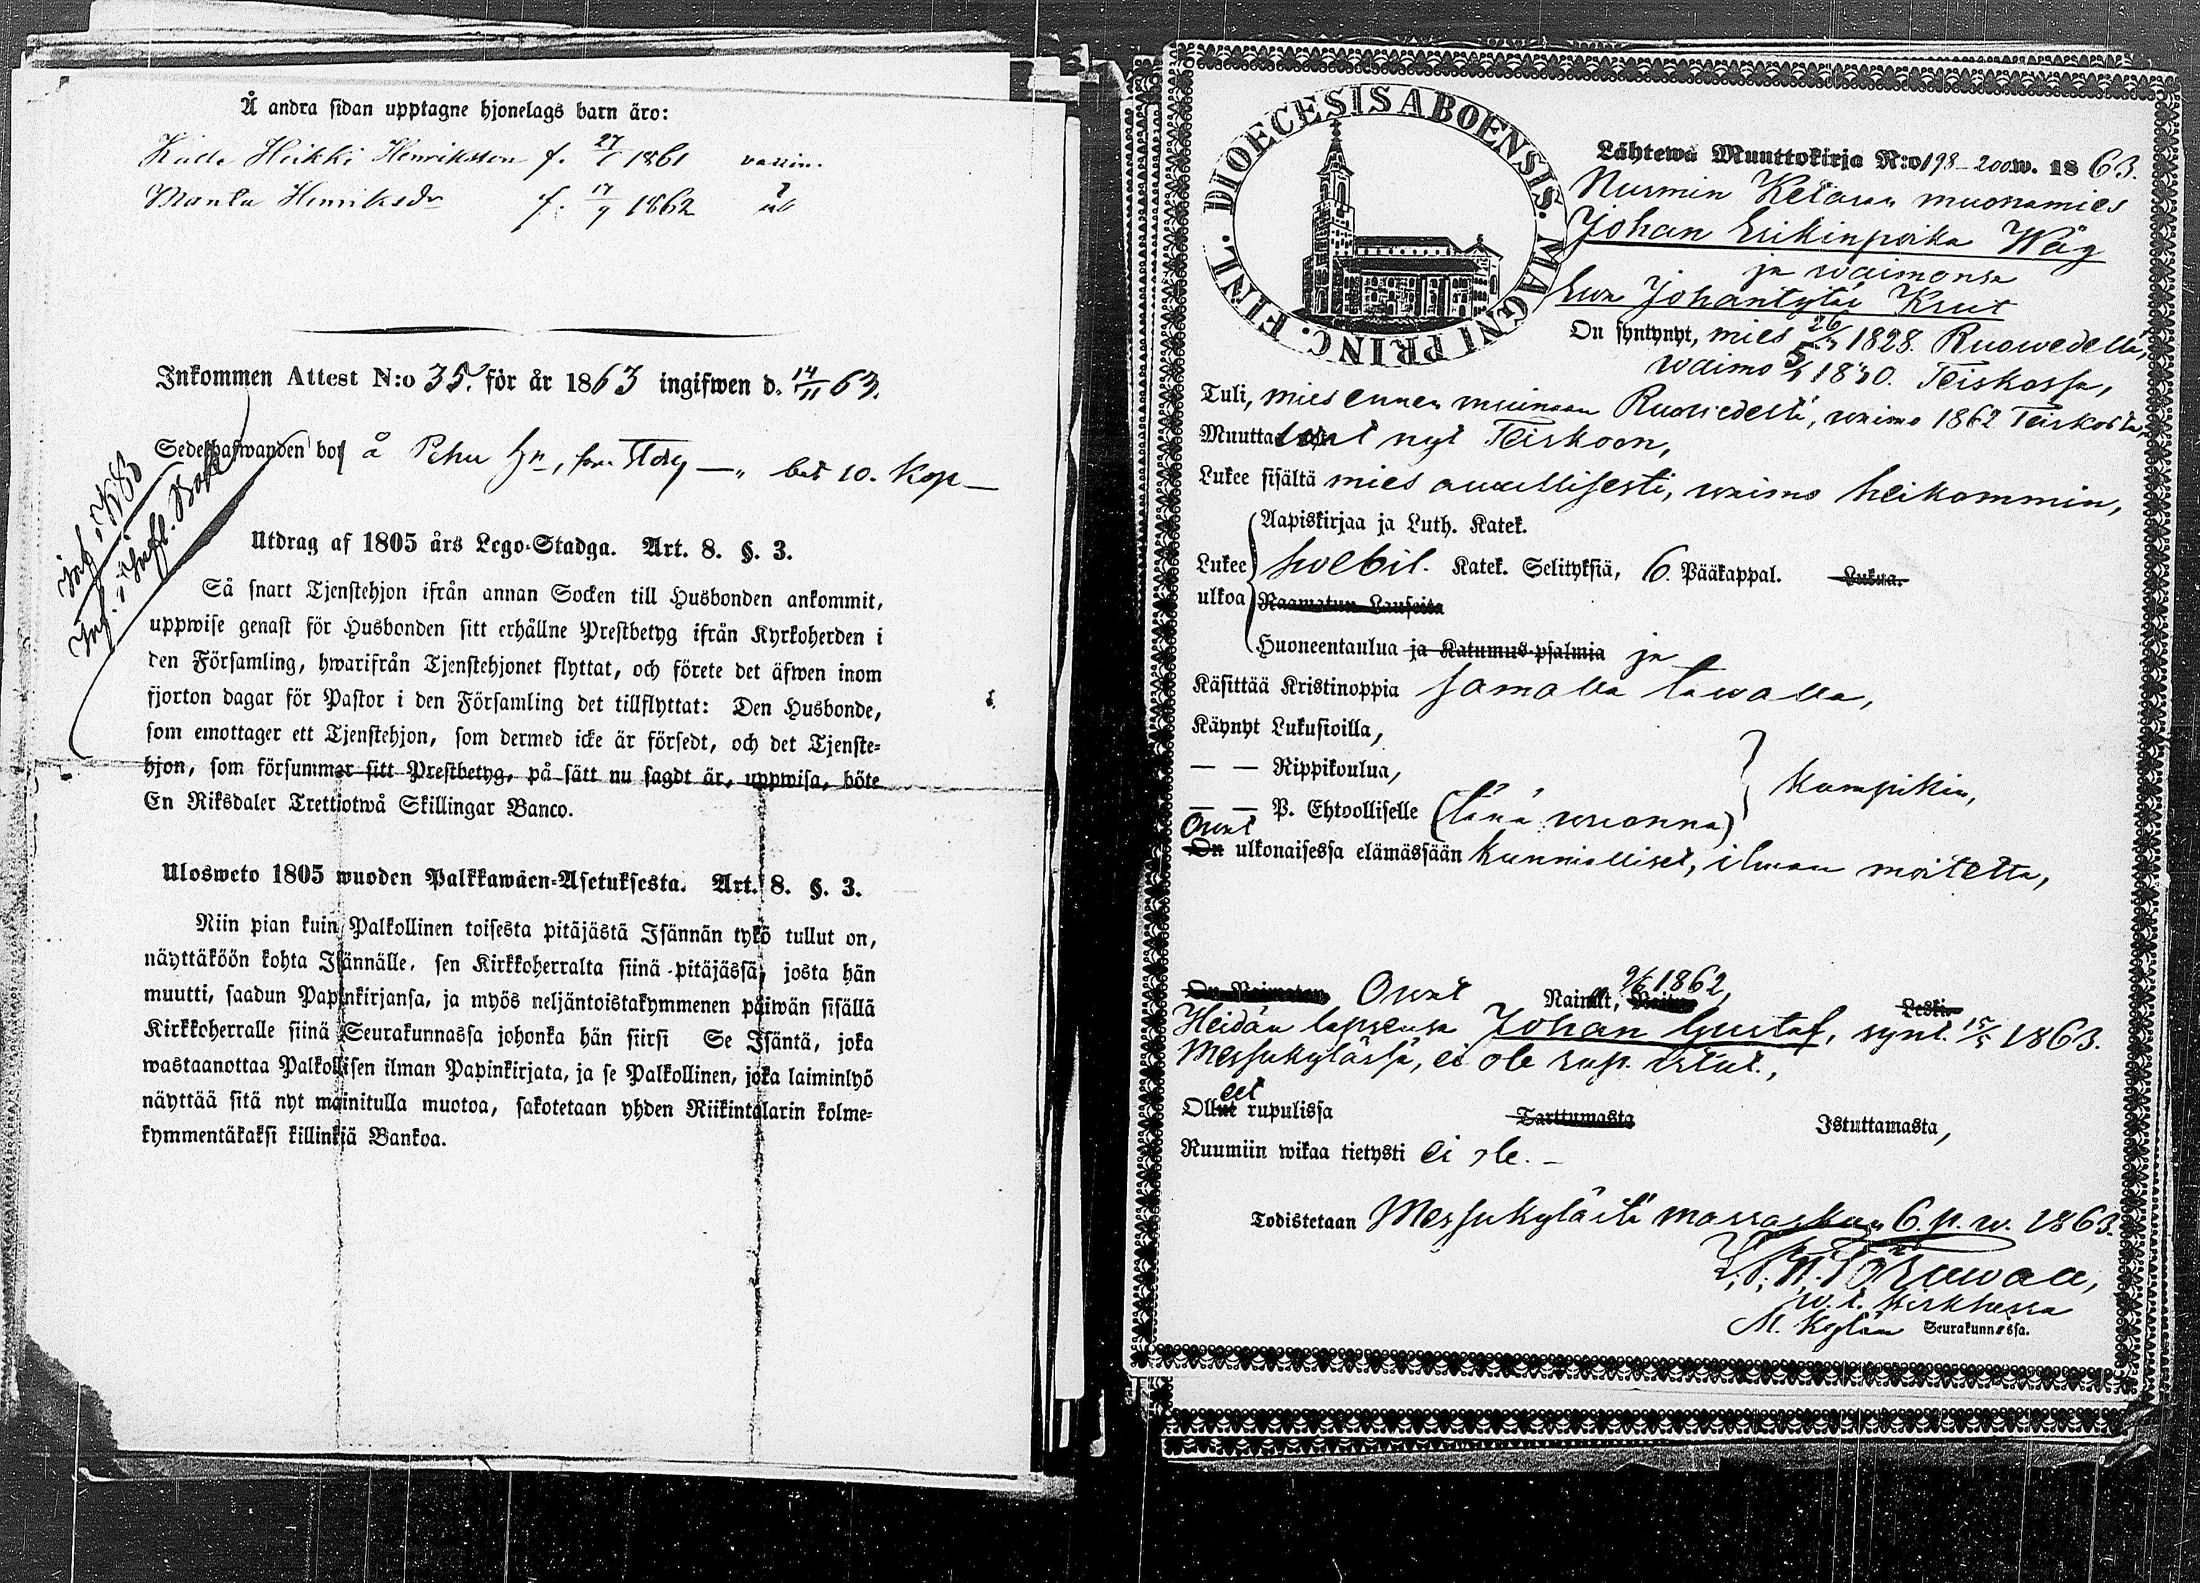 Å andra sidan upptagne hjonelags barn äro:
Heikki Henriksson f. 27/1 1861 vaccin.
Henriksdr f. 17/9 1862
Inkommen Attest N:o 35. för år 1863 ingifwen d. 14/11 63.
Sedelhafwanden bor å Pehu bet 10. Kop
Utdrag af 1805 års Lego-Stadga. Art. 8. §. 3.
Så snart Tjenstehjon ifrån annan Socken till Husbonden ankommit,
uppwise genast för Husbonden sitt erhållne Prestbetyg ifrån Kyrkoherden i
den Församling, hwarifrån Tjenstehjonet flyttat, och förete det äfwen inom
fjorton dagar för Pastor i den Församling det tillflyttat: Den Husbonde,
som emottager ett Tjenstehjon, som dermed icke är försedt, och det Tjenste-
hjon, som försummar sitt Prestbetyg, på sätt nu sagdt är, uppwisa, böte
En Riksdaler Trettiotwå Skillingar Banco.
Ulosweto 1805 wuoden Palkkawäen-Asetuksesta. Art. 8. §. 3.
Niin pian kuin Palkollinen toisesta pitäjästä Isännän tykö tullut on,
näyttäköön kohta Isännälle, sen Kirkkoherralta siinä pitäjässä, josta hän
muutti, saadun Papinkirjansa, ja myös neljäntoistakymmenen päiwän sisällä
Kirkkoherralle siinä Seurakunnassa johonka hän siirsi Se Isäntä, joka
wastaanottaa Palkollisen ilman Papinkirjata, ja se Palkollinen, joka laiminlyö
näyttää sitä nyt mainitulla muotoa, sakotetaan yhden Riikintalarin kolme-
kymmentäkaksi killinkiä Bankoa.
DIOECESIS ABOENSIS. MAGNI PRINC. FINL.
Lähtewä Muuttokirja N:o 198-200 w. 1863.
Nurmin Ketaran muonamies
Johan Erikinpoika Wäg
ja waimonsa
Ewa Johantytär Krut
On syntynyt, mies 26/ 1828. Ruowedellä,
waimo 1830. Teiskossa,
Tuli, mies ennen muinoin Ruowedeltä, waimo 1862 Teiskosta,
Muuttawat nyt Teiskoon,
Lukee sisältä mies auullisesti, waimo heikommin,
Aapiskirjaa ja Luth. Katek.
Lukee ulkoa Swebil. Katek. Selityksiä, 6. Pääkappal. Lukua.
Raamatun Lauseita
Huoneentaulua ja Katumus-psalmia ja
Käsittää Kristinoppia samalla tawalla,
Käynyt Lukusioilla,
— — Rippikoulua, kumpikin,
— — P. Ehtoolliselle (tänä wuonna)
Owat
On ulkonaisessa elämässään kunnialliset, ilman moitetta,
On Naimaton Owat Nainut, 1862, Leski
Heidän lapsensa Johan Gustaf, synt. 15/5 1863.
Messukylässä, ei ole rup. istut.,
Olleet rupulissa Tarttumasta Istuttamasta,
Ruumiin wikaa tietysti ei ole. —
Todistetaan Messukylästä marraskuun 6. p. w. 1863.
w. t. Kirkkherra
M. Kylän Seurakunnassa.